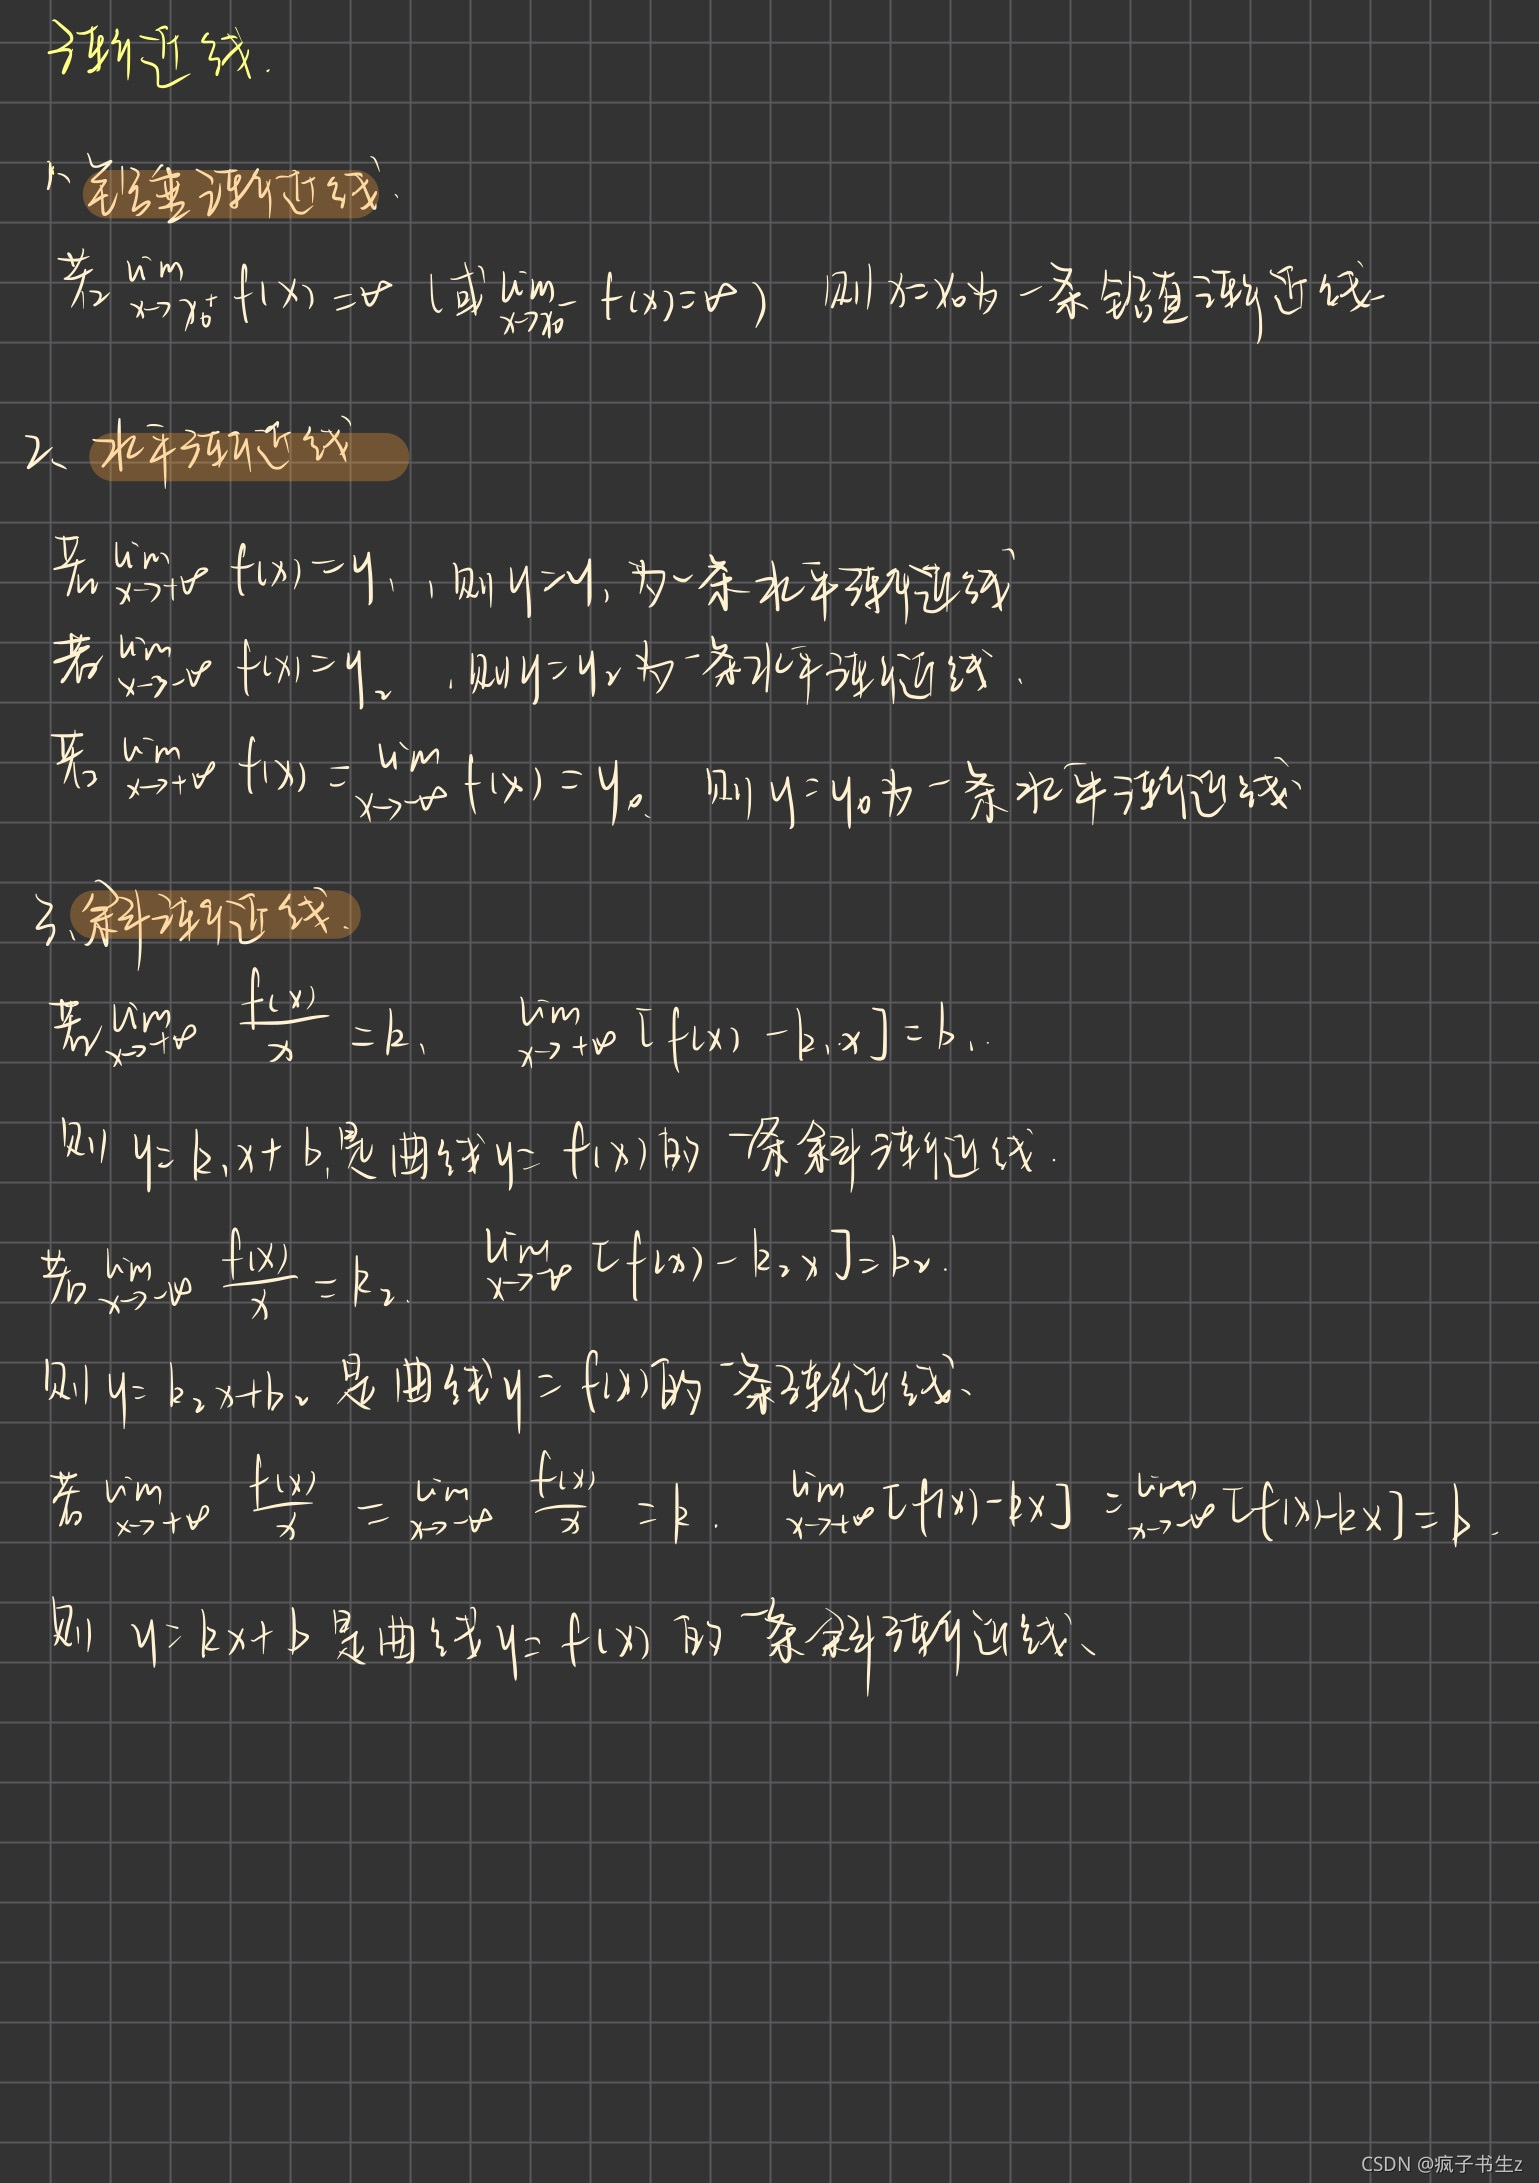 渐近线.
1、铅垂渐近线.
若 lim x→x₀⁺ f(x)=∞ (或 lim x→x₀⁻ f(x)=∞) 则x=x₀为一条铅直渐近线
2、水平渐近线
若 lim x→+∞ f(x)=y₁,则y=y₁为一条水平渐近线
若 lim x→-∞ f(x)=y₂,则y=y₂为一条水平渐近线.
若 lim x→+∞ f(x)= lim x→-∞ f(x)=y₀. 则y=y₀为一条水平渐近线
3、斜渐近线.
若 lim x→+∞ f(x)/x =k₁ lim x→+∞ [f(x)-k₁x]=b₁.
则 y=k₁x+b₁是曲线y=f(x)的一条斜渐近线.
若 lim x→-∞ f(x)/x =k₂. lim x→-∞ [f(x)-k₂x]=b₂.
则 y=k₂x+b₂ 是曲线y=f(x)的一条渐近线、
若 lim x→+∞ f(x)/x = lim x→-∞ f(x)/x =k. lim x→+∞ [f(x)-kx] = lim x→-∞ [f(x)-kx]=b.
则 y=kx+b 是曲线y=f(x)的一条斜渐近线、
CSDN @疯子书生z